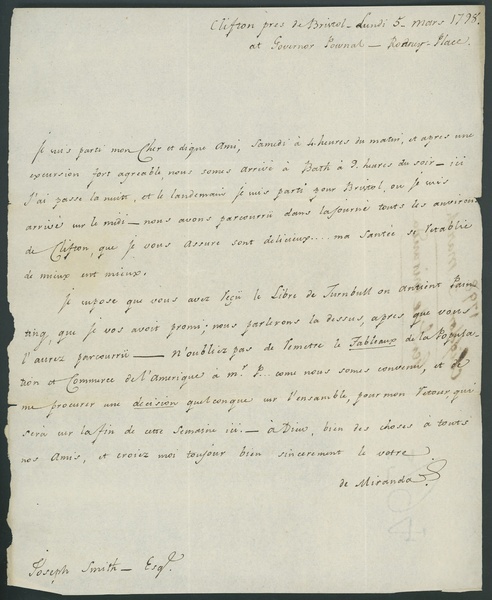 Clifton pres de Bristol - Lundi 5 - mars 1798.
at Governor Pownal - Rodney-Place.
Je suis parti mon Cher et digne Ami, Samedi à 4 heures du matin, et apres une
excursion fort agreable, nous somes arrivé à Bath à 9. heures du soir - ici
J'ai passe la nuitt, et le landemain je suis parti pour Bristol, ou je suis
arrivé sur le midi - nous avons parcourrii dans la journé touts les environs
de Clifton, que je vous assure sont délicieux... ma Santée se retablie
de mieux ent mieux.
Je supose que vous avez reçü le Libre de Turnbull on antient Pain-
ting, que je vos avoir promi; nous parlerons la dessus, apres que vous
l'aurez parcourrii - n'oubliez pas de remetre le Tableaux de la Popula-
tion et Commerce de l'Amerique à mr. P... come nous somes convenu, et de
me procurer une decision quelconque sur l'ensamble, pour mon retour qui
serà sur la fin de cette semaine ici. - à Dieu, bien des choses à touts
nos Amis, et croiez moi toujour bien sincerement le votre
de Miranda
Joseph Smith - Esqr.